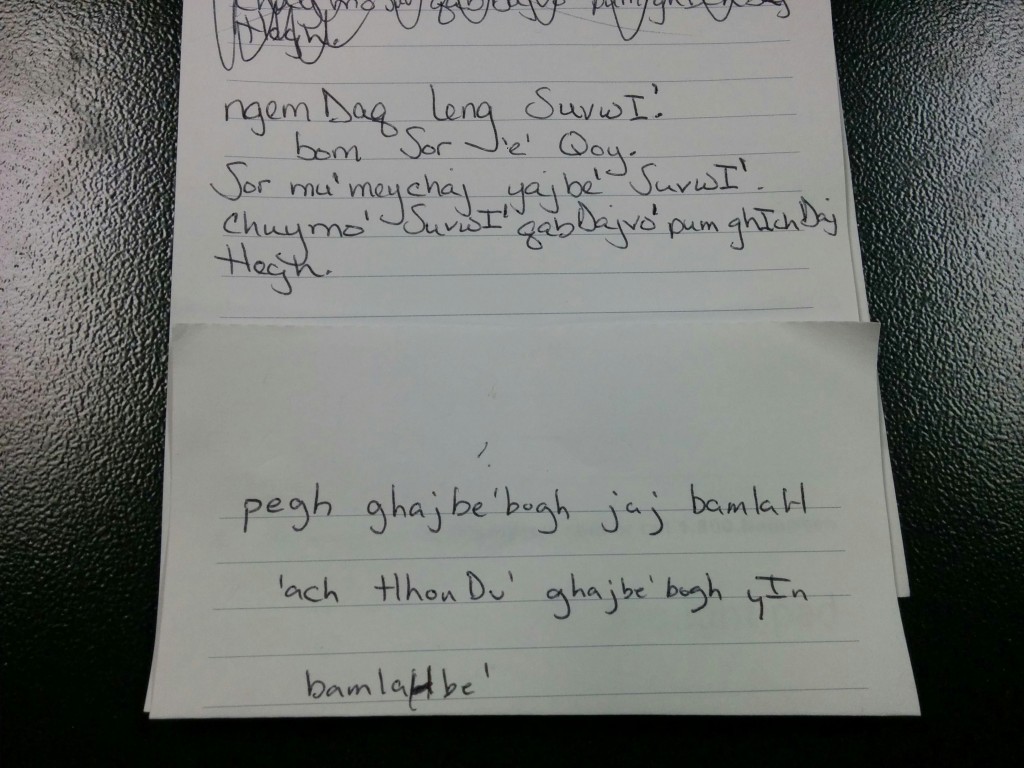 ngemDaq leng SuvwI'.
bom Sor Je' Qoy.
Sor mu'meychaj yajbe' SuvwI'.
Chuymo' SuvwI' qabDajvo' pum ghIchDaj
Hegh.
pegh ghajbe'bogh jaj bamlaH
'ach HhonDu' ghajbe'bogh yIn
bamlaHbe'